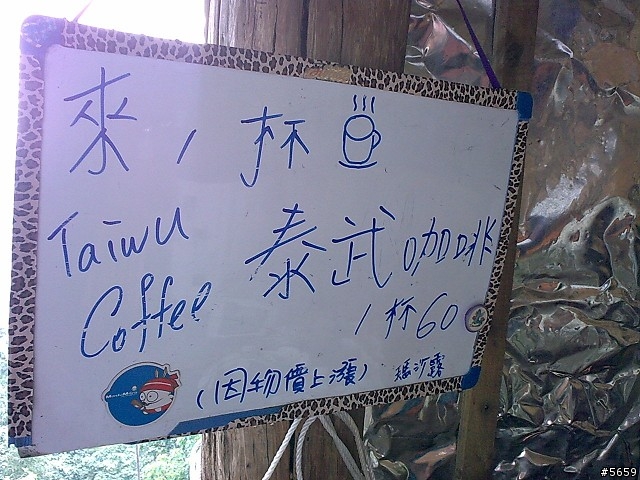 來1杯
Taiwu 泰武咖啡
Coffee 1杯60
(因物價上漲)
#5659